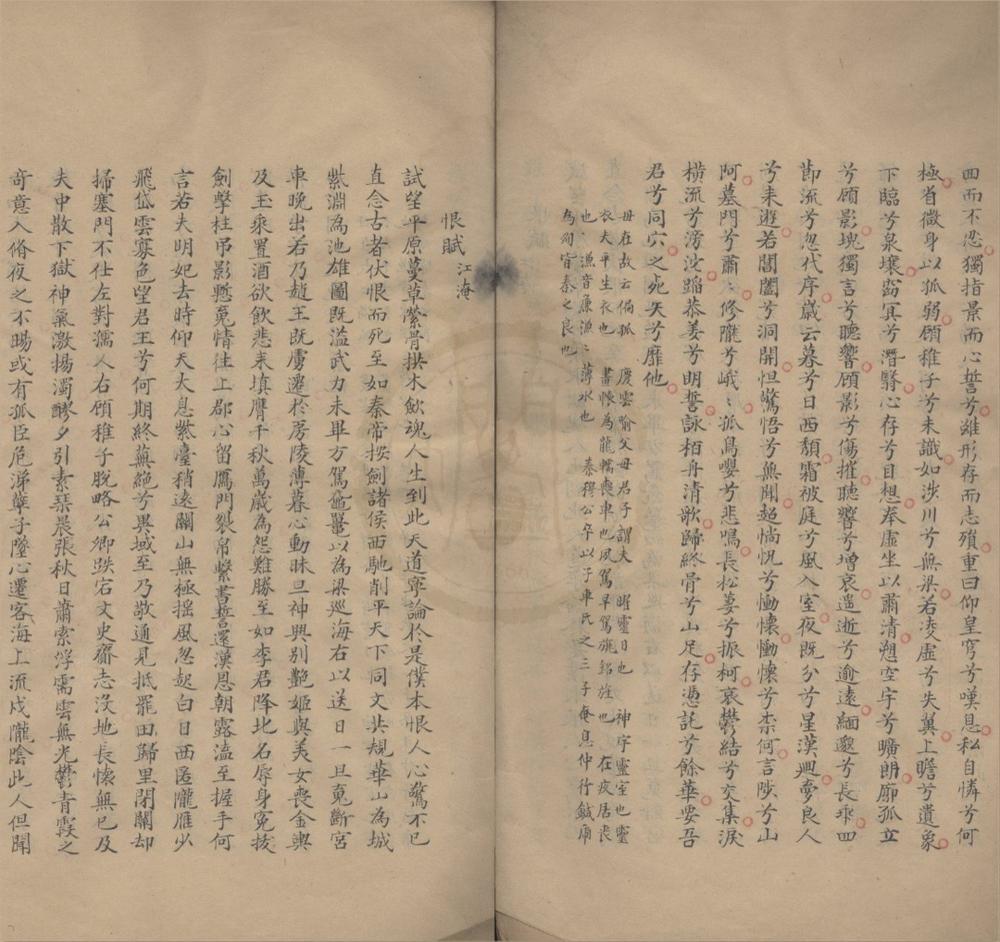 西而不忍獨指景而心誓兮雖形存而志殞重曰仰皇穹兮嘆息私自憐兮何
極省微身以孤弱顧稚子兮未識如涉川兮無梁若凌虛兮失翼上瞻兮遺象
下臨兮泉壤窈冥兮潛翳心存兮目想奉虛坐以肅清愬空宇兮曠朗廓孤立
兮顧影塊獨言兮聽響顧影兮傷摧聽響兮增哀遥逝兮逾遠緬邈兮長乖四
節流兮忽代序歲云暮兮日西頹霜被庭兮風入室夜既分兮星漢迴夢良人
兮来遊若閶闔兮洞開怛驚悟兮無聞超惝怳兮慟懷慟懷兮柰何言陟兮山
阿墓門兮肅々修隴兮峨々孤鳥嚶兮悲鳴長松萋兮振柯哀鬱結兮交集淚
横流兮滂沱蹈恭姜兮明誓詠栢舟清歌歸終骨兮山足存憑託兮餘華要吾
君兮同穴之死矢兮靡他
母在故云偏孤 慶雲喻父母君子謂夫 曜靈日也 神宇靈室也靈
衣夫平生衣也 書帳為龍輀喪車也夙駕早駕旐銘旌也在疚居喪
也 漁音廉漁々薄水也 秦穆公卒以子車氏之三子奄息仲行鍼虎
為殉皆秦之良也
恨賦 江淹
試望平原蔓草縈骨拱木飲魂人生到此天道寧論於是僕本恨人心驚不已
直念古者伏恨而死至如秦帝按劍諸侯西馳削平天下同文共規華山為城
紫淵為池雄圖既溢武力未畢方駕黿鼉以為梁巡海右以送日一旦䰟斷宮
車晚出若乃趙王既虜遷於房陵薄暮心動昧旦神興别艷姬與美女喪金輿
及玉乘置酒欲飲悲来填膺千秋萬歲為怨難勝至如李君降北名辱身冤拔
劍擊柱弔影慙䰟情往上郡心留鴈門裂帛繫書誓還漢恩朝露溘至握手何
言若夫明妃去時仰天太息紫臺稍遠關山無極摇風忽起白日西匿隴雁少
飛岱雲寡色望君王兮何期終蕪絶兮異域至乃敬通見抵罷田歸里閉關却
掃塞門不仕左對孺人右顧稚子脱略公卿跌宕文史齎志沒地長懷無已及
夫中散下獄神氣激揚濁醪夕引素琴晨張秋日蕭索浮雲無光鬱青霞之
奇意入脩夜之不暘或有孤臣危涕孽子墜心遷客海上流戍隴陰此人但聞